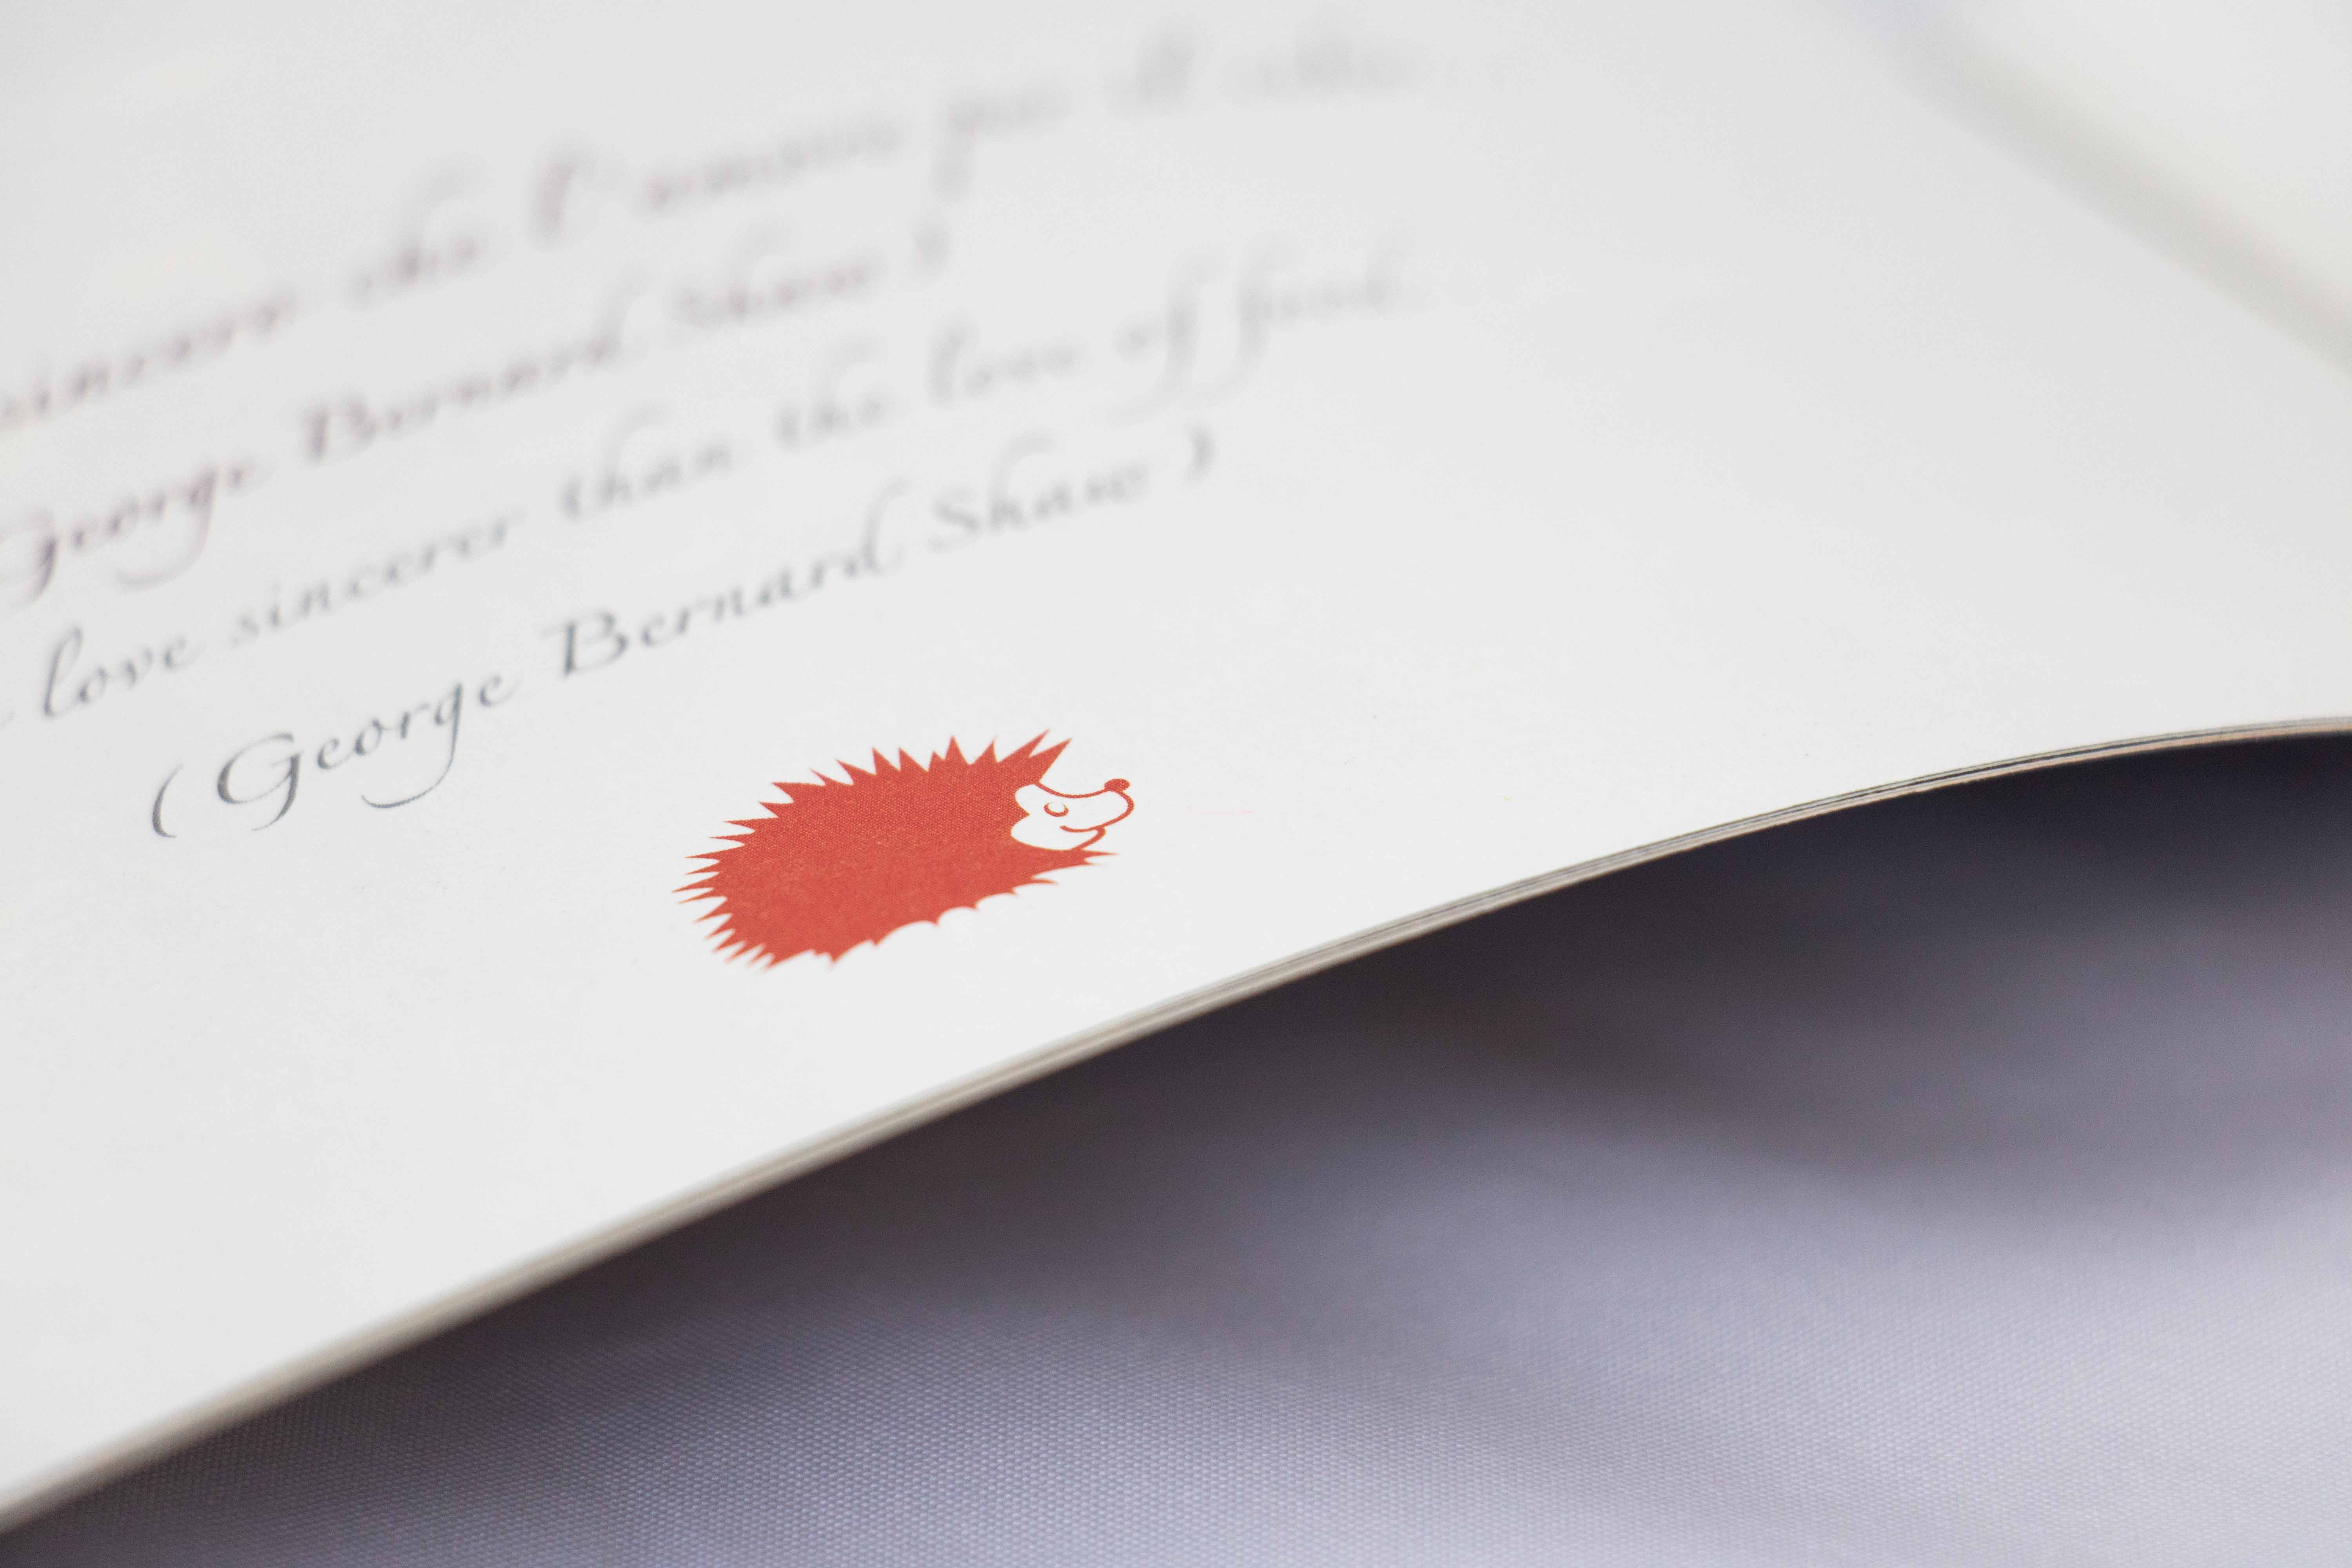 sincero che l'amore per il cibo...
George Bernard Shaw )
love sincerer than the love of food...
( George Bernard Shaw )